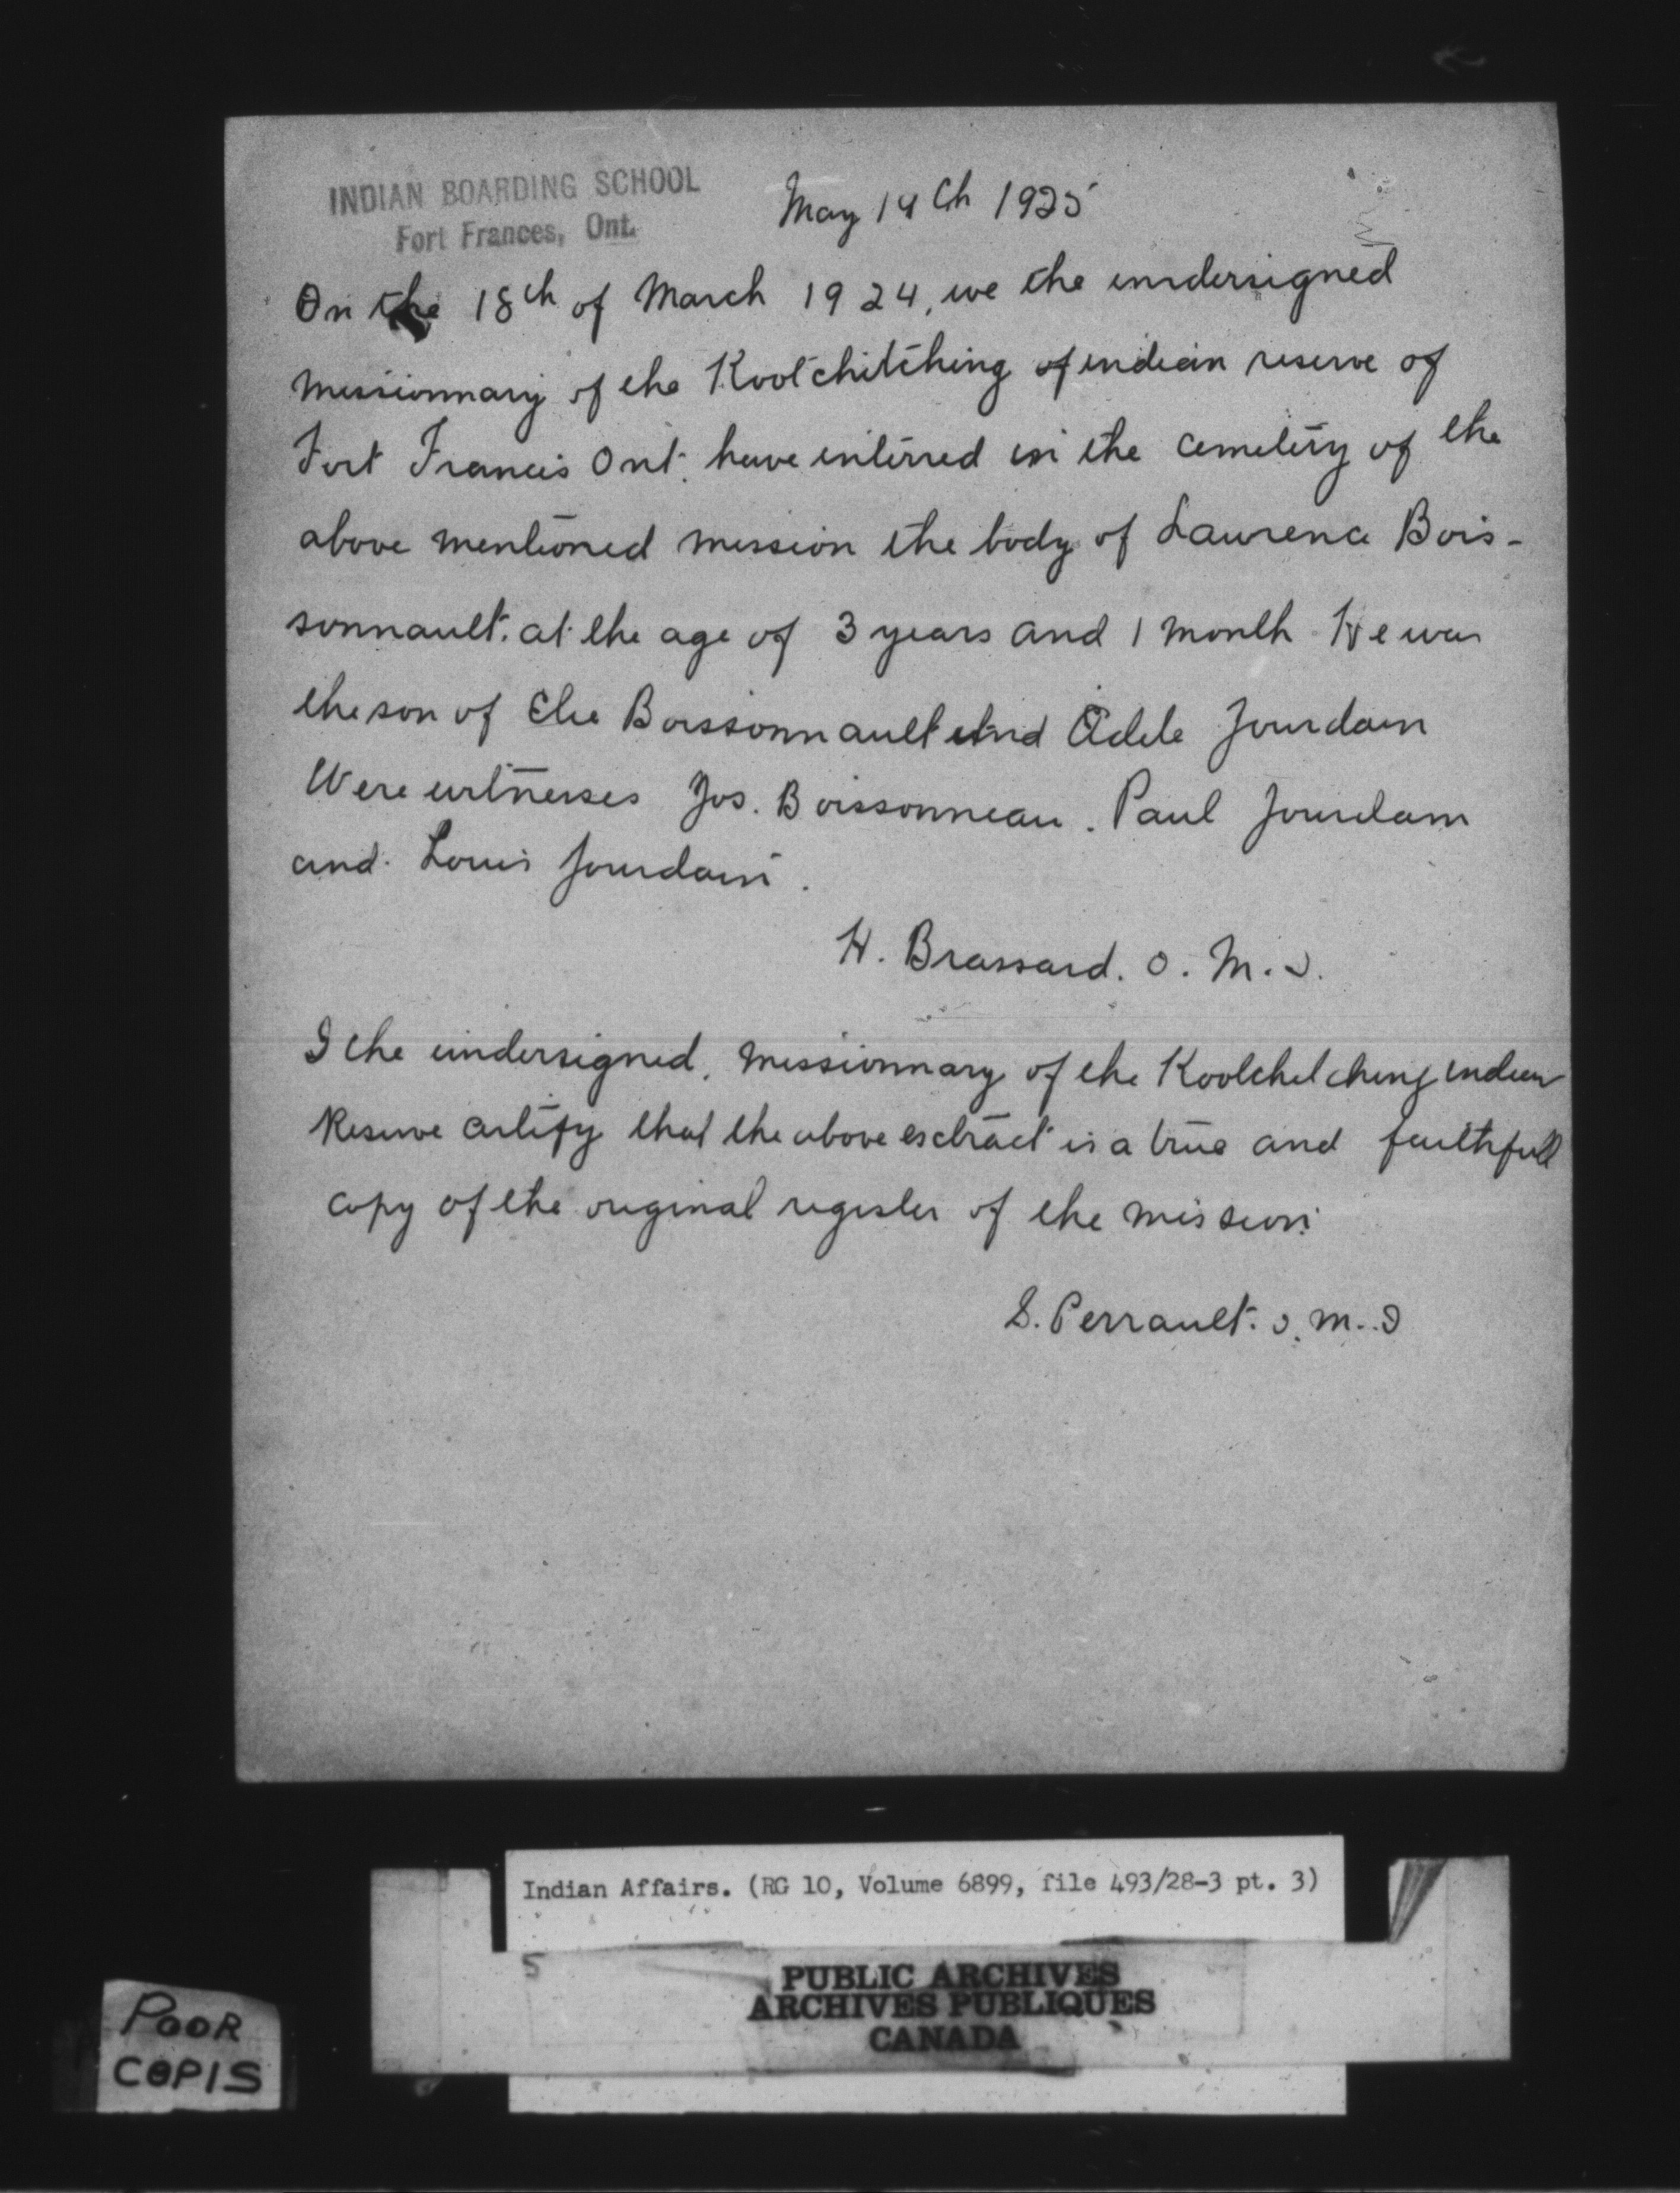 INDIAN BOARDING SCHOOL
Fort Frances, Ont.
May 14th 1925
On the 18th of March 1924, we the undersigned
missionnary of the Kootchitching of indian reserve of
Fort Francis Ont. have interred in the cemetery of the
above mentioned mission the body of Laurence Bois-
sonnault. at the age of 3 years and 1 month He was
the son of Elie Boissonnault and Adele Jourdain
Were witnesses Jos. Boissonneau. Paul Jourdain
and Louis Jourdain.
H. Brassard. O. M. I.
I the undersigned, missionnary of the Kootchetching indian
Reserve certify that the above esctract is a true and faithfull
copy of the original register of the mission.
S. Perrault. o. m. I
Indian Affairs. (RG 10, Volume 6899, file 493/28-3 pt. 3)
5
PUBLIC ARCHIVES
ARCHIVES PUBLIQUES
CANADA
POOR
COPIS